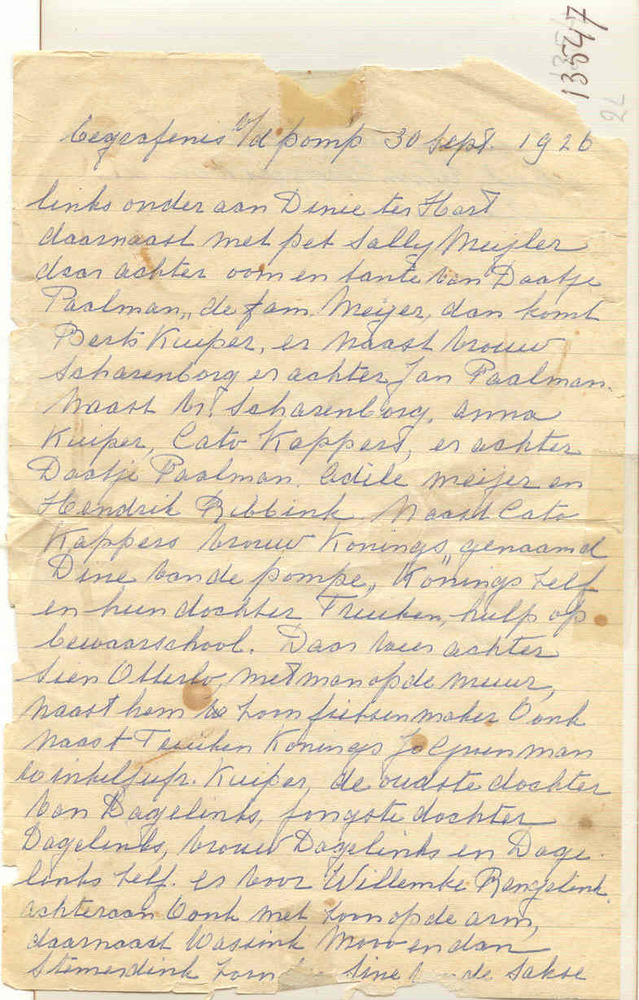 13547
26
begrafenis v/d pomp 30 Sept. 1926
links onder aan Dinie ter Horst
daarnaast met pet Sally Meijler
daar achter oom en tante van Daatje
Paalman, de fam. Meijer, dan komt
Berts Kuiper, er naast vrouw
Scharenborg er achter Jan Paalman.
Naast Vr. Scharenborg, Anna
Kuiper, Cato Kappers, er achter
Daatje Paalman. Adile Meijer en
Hendrik Ribbink. Naast Cato
Kappers vrouw Konings, genaamd
Dine van de pompe, Konings zelf
en hun dochter Treuken, hulp op
bewaarschool. Daar weer achter
Sien Otterlo, met man op de muur,
naast hem de zoon fietsenmaker Oonk
Naast Treuken Konings Jo Grven man
winkeljufr. Kuiper, de oudste dochter
van Dagelinks, jongste dochter
Dagelinks, vrouw Dagelinks en Dage
links zelf. er voor Willemke Rengelink.
achteraan Oonk met zoon op de arm,
daarnaast Wassink en dan
Stemerdink zoon Sine de Sakse